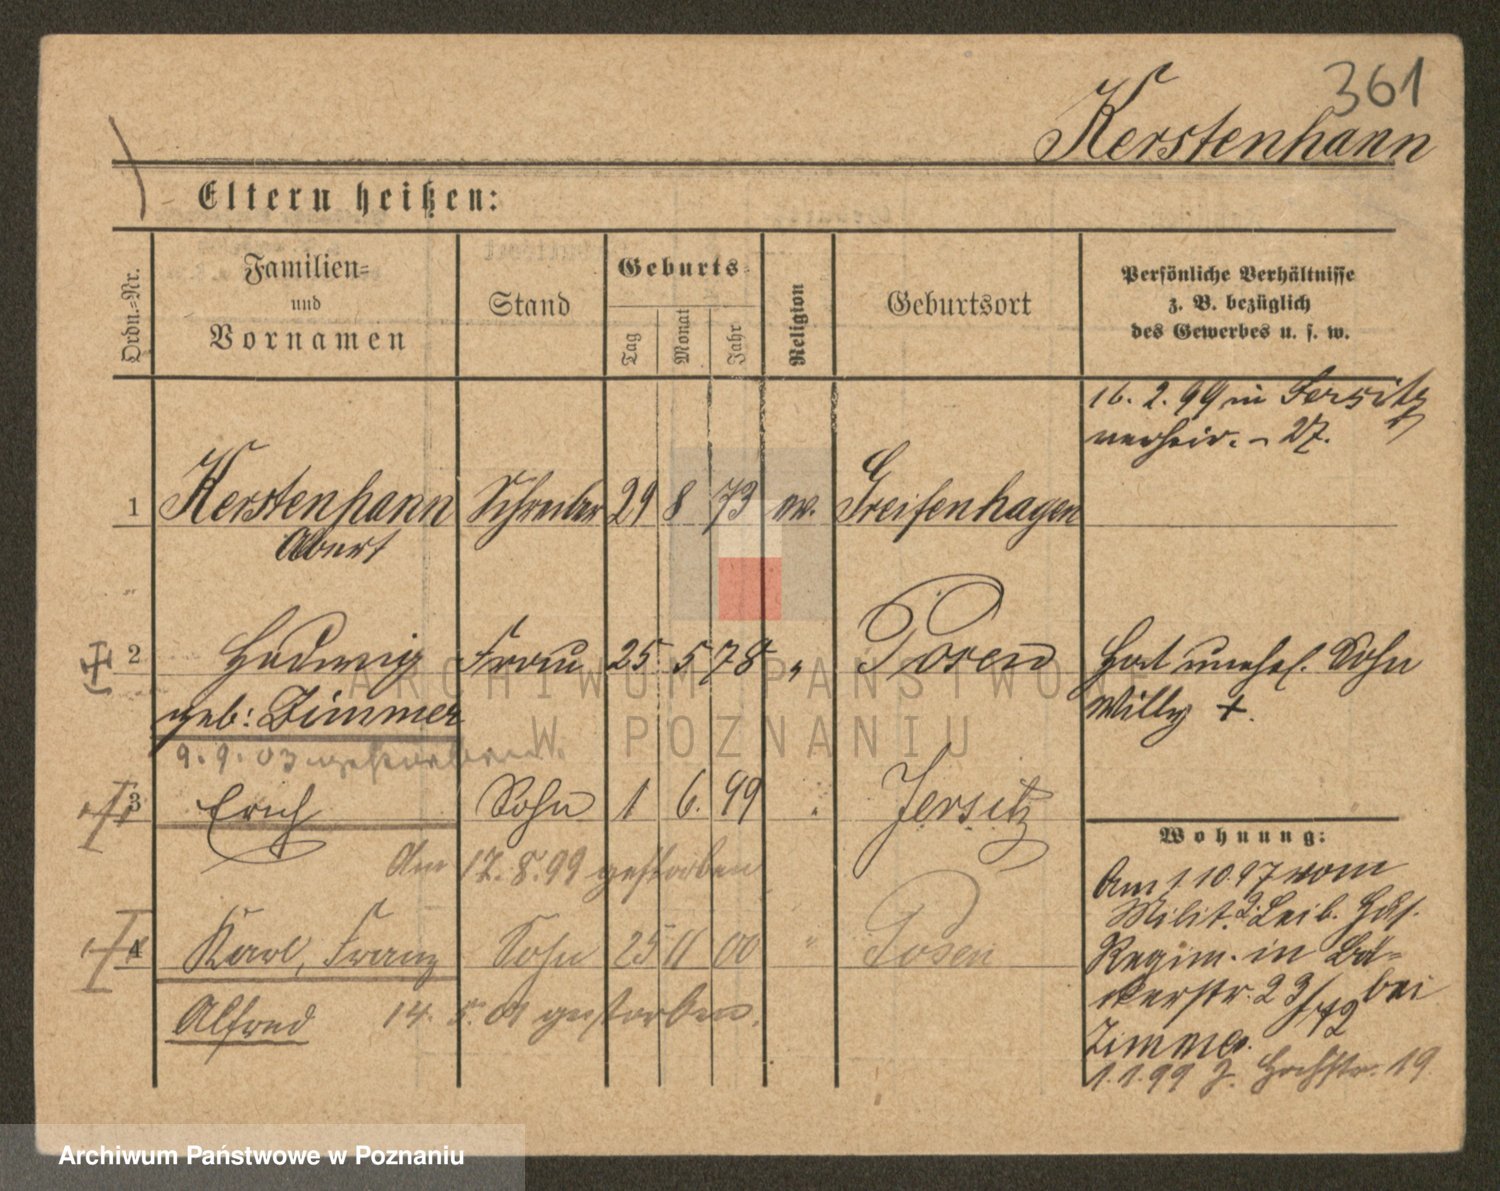 361
Kerstenhann
Eltern heißen:
Ordn.=Nr.
Familien=
und
Vornamen
Stand
Geburts=
Tag
Monat
Jahr
Religion
Geburtsort
Persönliche Verhältnisse
z. B. bezüglich
des Gewerbes u. s. w.
16. 2. 99 in Jersitz
verheir. - 27.
1 Kerstenhann Schreiber 29 8 73 ev. Greifenhagen
Albert
2 Hedwig Frau 25 5 78 " Posen Hat unehel. Sohn
geb: Zimmer Willy +.
9. 9. 03 gestorben.
3 Erich Sohn 1 6. 99 " Jersitz
Am 17. 8. 99 gestorben
4 Karl, Franz Sohn 25 11 00 " Posen
Alfred 14. 5. 01 gestorben.
Wohnung:
Am 1 10. 97 vom
Milit. 2. Leib. Hus.
Regim. in Bä-
ckerstr. 23/ bei
Zimmer.
1. 1. 99 J. Hochstr. 19
ARCHIWUM PAŃSTWOWE
W POZNANIU
Archiwum Państwowe w Poznaniu